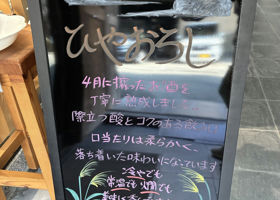 ひやおろし
4月に搾ったお酒を
丁寧に熟成しました。
際立つ酸とコクのある飲み口
口当たりは柔らかく、
落ち着いた味わいになっています
冷やでも
常温でも燗でも